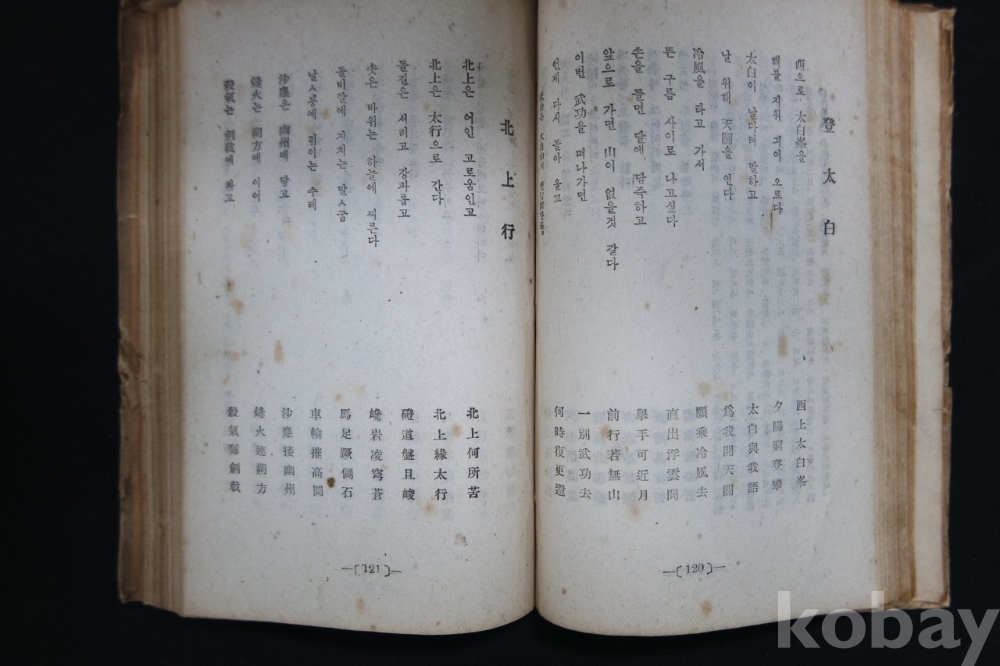 登太白
西으로 太白峯을
해를 지워 긔어 오르다
太白이 날다려 말하고
날 위해 天關을 연다
冷風을 타고 가서
뜬 구름 사이로 나고싶다
손을 들면 달에 땅주하고
앞으로 가면 山이 없을것 같다
이번 武功을 떠나가면
언제 다시 돌아 올고
西上太白峯
夕陽窮登攀
太白與我語
爲我開天關
願乘冷風去
直出浮雲間
擧手可近月
前行若無山
一別武功去
何時復更還
—〔120〕—
北上行
北上은 어인 고로움인고
北上은 太行으로 간다
돌길은 서리고 강파롭고
솟은 바위는 하늘에 찌른다
돌비알에 지치는 말ㅅ굽
날ㅅ등에 꺾이는 수레
沙塵은 幽州에 닿고
烽火는 朔方에 이어
殺氣는 劍戟에 차고
北上何所苦
北上緣太行
磴道盤且峻
巉岩凌穹蒼
馬足蹶側石
車輪摧高岡
沙塵接幽州
烽火連朔方
殺氣毒劍戟
—〔121〕—
kobay